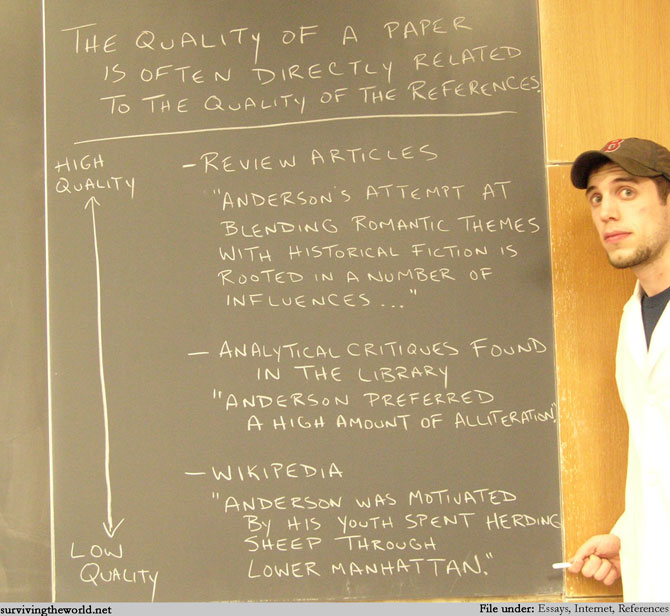 THE QUALITY OF A PAPER
IS OFTEN DIRECTLY RELATED
TO THE QUALITY OF THE REFERENCES.
HIGH
QUALITY
- REVIEW ARTICLES
"ANDERSON'S ATTEMPT AT
BLENDING ROMANTIC THEMES
WITH HISTORICAL FICTION IS
ROOTED IN A NUMBER OF
INFLUENCES ..."
- ANALYTICAL CRITIQUES FOUND
IN THE LIBRARY
"ANDERSON PREFERRED
A HIGH AMOUNT OF ALLITERATION."
- WIKIPEDIA
"ANDERSON WAS MOTIVATED
BY HIS YOUTH SPENT HERDING
SHEEP THROUGH
LOWER MANHATTAN."
LOW
QUALITY
B
survivingtheworld.net
File under: Essays, Internet, References